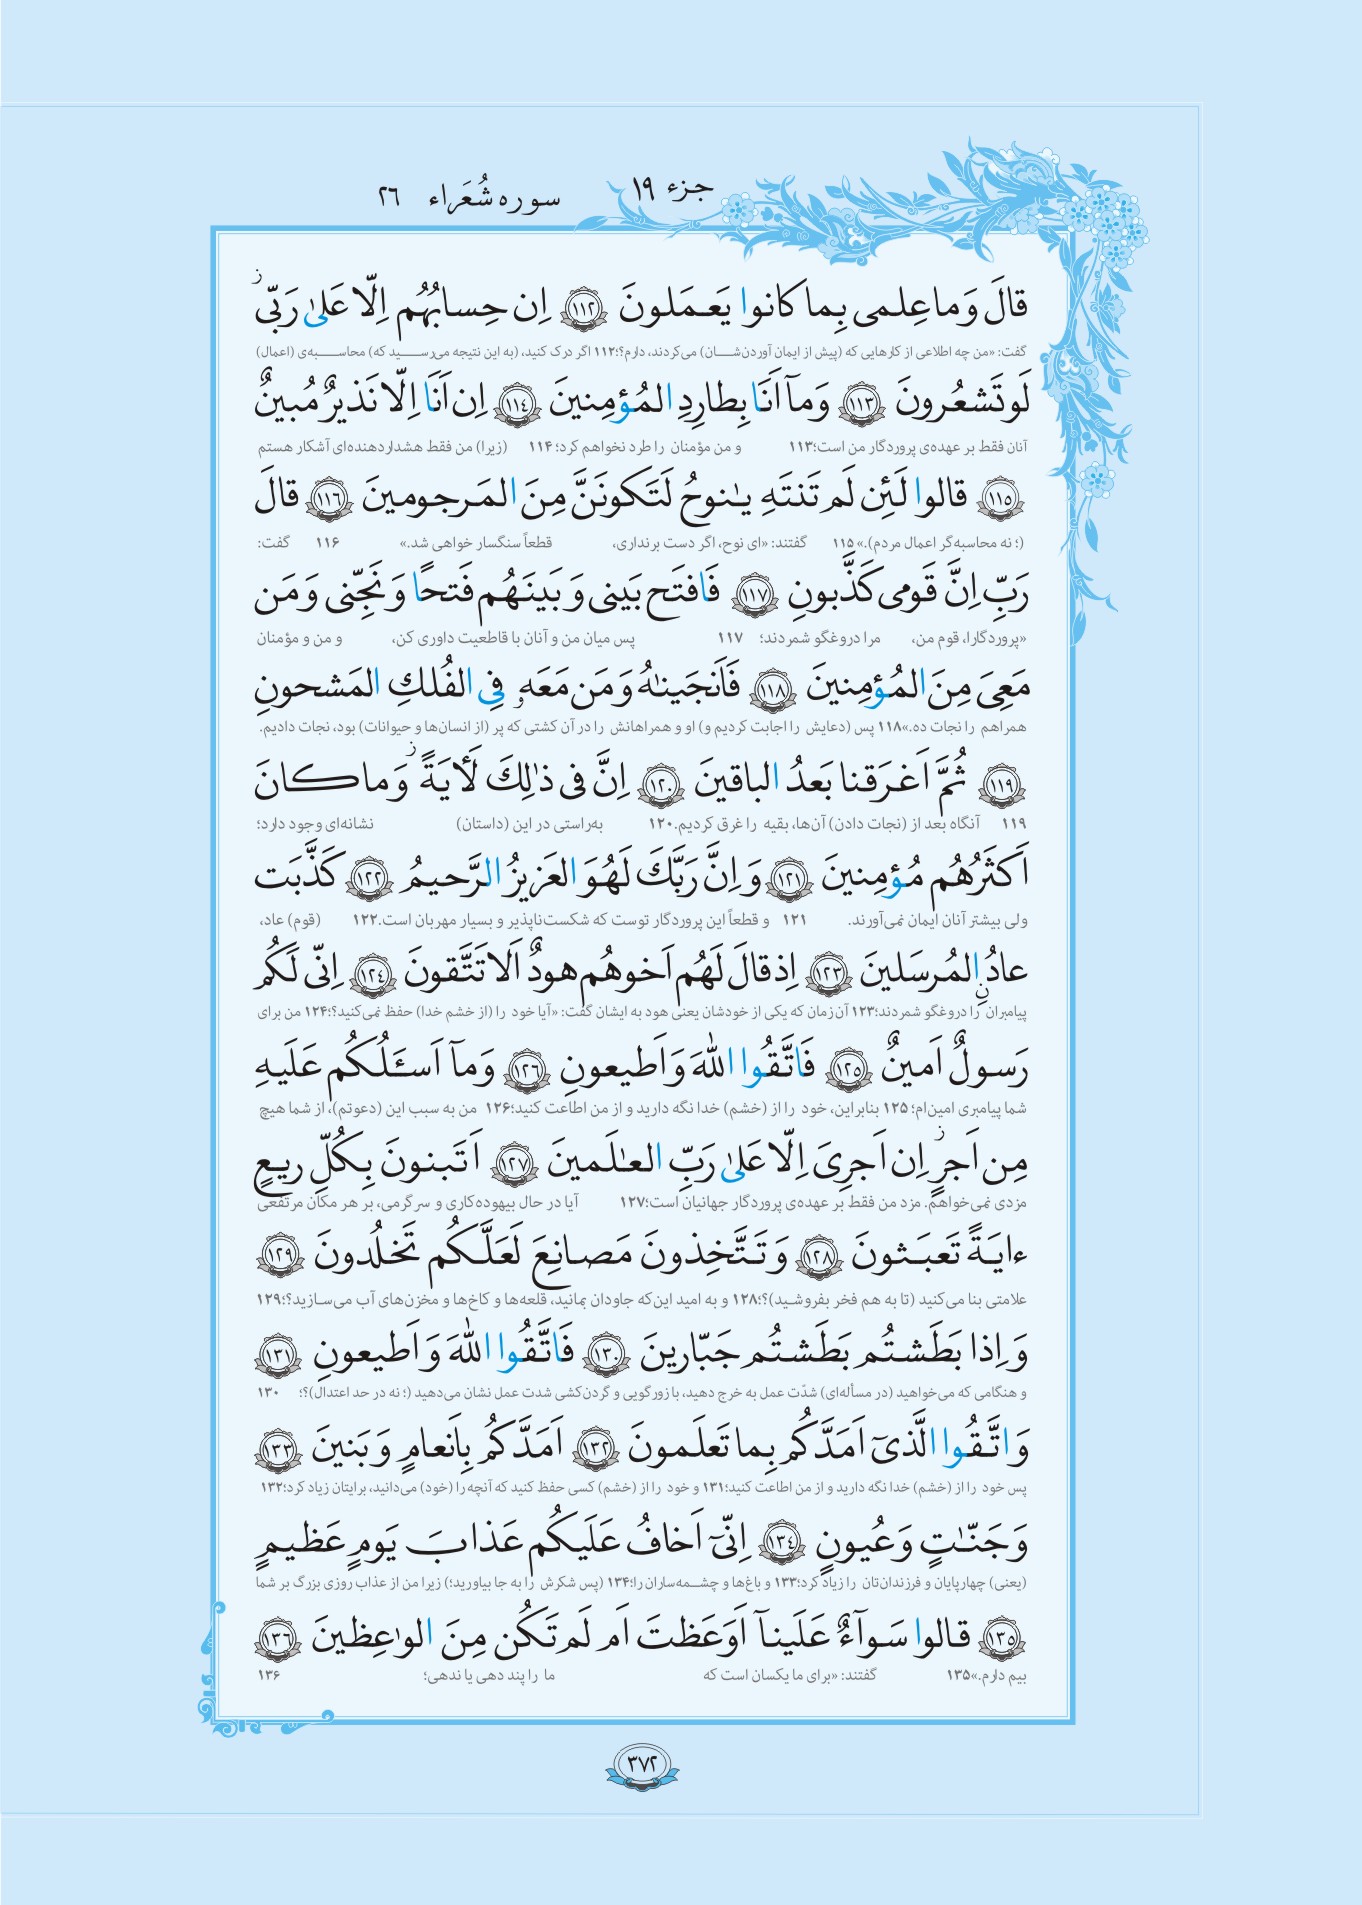 جزء ۱۹
سوره شُعَراء ۲۶
قالَ وَما عِلمی بِما کانوا یَعمَلونَ ﴿۱۱۲﴾ اِن حِسابُهُم اِلّا عَلیٰ رَبّی ز
گفت: «من چه اطلاعی از کارهایی که (پیش از ایمان آوردن‌شان) می‌کردند، دارم؟؛۱۱۲ اگر درک کنید، (به این نتیجه می‌رسید که) محاسبه‌ی (اعمال)
لَو تَشعُرونَ ﴿۱۱۳﴾ وَمآ اَنَا بِطارِدِ المُؤمِنینَ ﴿۱۱٤﴾ اِن اَنَا اِلّا نَذیرٌ مُبینٌ
آنان فقط بر عهده‌ی پروردگار من است؛۱۱۳ و من مؤمنان را طرد نخواهم کرد؛ ۱۱۴ (زیرا) من فقط هشداردهنده‌ای آشکار هستم
﴿۱۱۵﴾ قالوا لَئِن لَم تَنتَهِ یـٰنوحُ لَتَکونَنَّ مِنَ المَرجومینَ ﴿۱۱٦﴾ قالَ
(؛ نه محاسبه‌گر اعمال مردم).» ۱۱۵ گفتند: «ای نوح، اگر دست برنداری، قطعاً سنگسار خواهی شد.» ۱۱۶ گفت:
رَبِّ اِنَّ قَومی کَذَّبونِ ﴿۱۱۷﴾ فَافتَح بَینی وَ بَینَهُم فَتحًا وَ نَجِّنی وَ مَن
«پروردگارا، قوم من، مرا دروغگو شمردند؛ ۱۱۷ پس میان من و آنان با قاطعیت داوری کن، و من و مؤمنان
مَعِیَ مِنَ المُؤمِنینَ ﴿۱۱۸﴾ فَاَنجَینـٰهُ وَ مَن مَعَهو فِی الفُلکِ المَشحونِ
همراهم را نجات ده.»۱۱۸ پس (دعایش را اجابت کردیم و) او و همراهانش را در آن کشتی که پر (از انسان‌ها و حیوانات) بود، نجات دادیم.
﴿۱۱۹﴾ ثُمَّ اَغرَقنا بَعدُ الباقینَ ﴿۱۲۰﴾ اِنَّ فی ذٰلِکَ لَأیَةً ز وَما کانَ
۱۱۹ آنگاه بعد از (نجات دادن) آن‌ها، بقیه را غرق کردیم.۱۲۰ به‌راستی در این (داستان) نشانه‌ای وجود دارد؛
اَکثَرُهُم مُؤمِنینَ ﴿۱۲۱﴾ وَ اِنَّ رَبَّکَ لَهُوَ العَزیزُ الرَّحیمُ ﴿۱۲۲﴾ کَذَّبَت
ولی بیشتر آنان ایمان نمی‌آورند. ۱۲۱ و قطعاً این پروردگار توست که شکست‌ناپذیر و بسیار مهربان است.۱۲۲ (قوم) عاد،
عادُنِ المُرسَلینَ ﴿۱۲۳﴾ اِذ قالَ لَهُم اَخوهُم هودٌ اَلا تَتَّقونَ ﴿۱۲٤﴾ اِنّی لَکُم
پیامبران را دروغگو شمردند؛۱۲۳ آن زمان که یکی از خودشان یعنی هود به ایشان گفت: «آیا خود را (از خشم خدا) حفظ نمی‌کنید؟؛۱۲۴ من برای
رَسولٌ اَمینٌ ﴿۱۲۵﴾ فَاتَّقُوا اللّٰهَ وَ اَطیعونِ ﴿۱۲٦﴾ وَمآ اَسـَٔلُکُم عَلَیهِ
شما پیامبری امین‌ام؛ ۱۲۵ بنابراین، خود را از (خشم) خدا نگه دارید و از من اطاعت کنید؛۱۲۶ من به سبب این (دعوتم)، از شما هیچ
مِن اَجرٍ ز اِن اَجرِیَ اِلّا عَلیٰ رَبِّ العـٰلَمینَ ﴿۱۲۷﴾ اَتَبنونَ بِکُلِّ ریعٍ
مزدی نمی‌خواهم. مزد من فقط بر عهده‌ی پروردگار جهانیان است؛۱۲۷ آیا در حال بیهوده‌کاری و سرگرمی، بر هر مکان مرتفعی
ءایَةً تَعبَثونَ ﴿۱۲۸﴾ وَ تَتَّخِذونَ مَصانِعَ لَعَلَّکُم تَخلُدونَ ﴿۱۲۹﴾
علامتی بنا می‌کنید (تا به هم فخر بفروشید)؟؛۱۲۸ و به امید این‌که جاودان بمانید، قلعه‌ها و کاخ‌ها و مخزن‌های آب می‌سازید؟؛۱۲۹
وَ اِذا بَطَشتُم بَطَشتُم جَبّارینَ ﴿۱۳۰﴾ فَاتَّقُوا اللّٰهَ وَ اَطیعونِ ﴿۱۳۱﴾
و هنگامی که می‌خواهید (در مسأله‌ای) شدّت عمل به خرج دهید، با زورگویی و گردن‌کشی شدت عمل نشان می‌دهید (؛ نه در حد اعتدال)؟؛ ۱۳۰
وَ اتَّقُوا الَّذیٓ اَمَدَّکُم بِما تَعلَمونَ ﴿۱۳۲﴾ اَمَدَّکُم بِاَنعامٍ وَ بَنینَ ﴿۱۳۳﴾
پس خود را از (خشم) خدا نگه دارید و از من اطاعت کنید؛۱۳۱ و خود را از (خشم) کسی حفظ کنید که آنچه را (خود) می‌دانید، برایتان زیاد کرد؛۱۳۲
وَ جَنّـٰتٍ وَ عُیونٍ ﴿۱۳٤﴾ اِنّیٓ اَخافُ عَلَیکُم عَذابَ یَومٍ عَظیمٍ
(یعنی) چهارپایان و فرزندان‌تان را زیاد کرد؛۱۳۳ و باغ‌ها و چشمه‌ساران را؛۱۳۴ (پس شکرش را به جا بیاورید؛) زیرا من از عذاب روزی بزرگ بر شما
﴿۱۳۵﴾ قالوا سَوآءٌ عَلَینآ اَوَعَظتَ اَم لَم تَکُن مِنَ الوٰعِظینَ ﴿۱۳٦﴾
بیم دارم.»۱۳۵ گفتند: «برای ما یکسان است که ما را پند دهی یا ندهی؛ ۱۳۶
۳۷۲